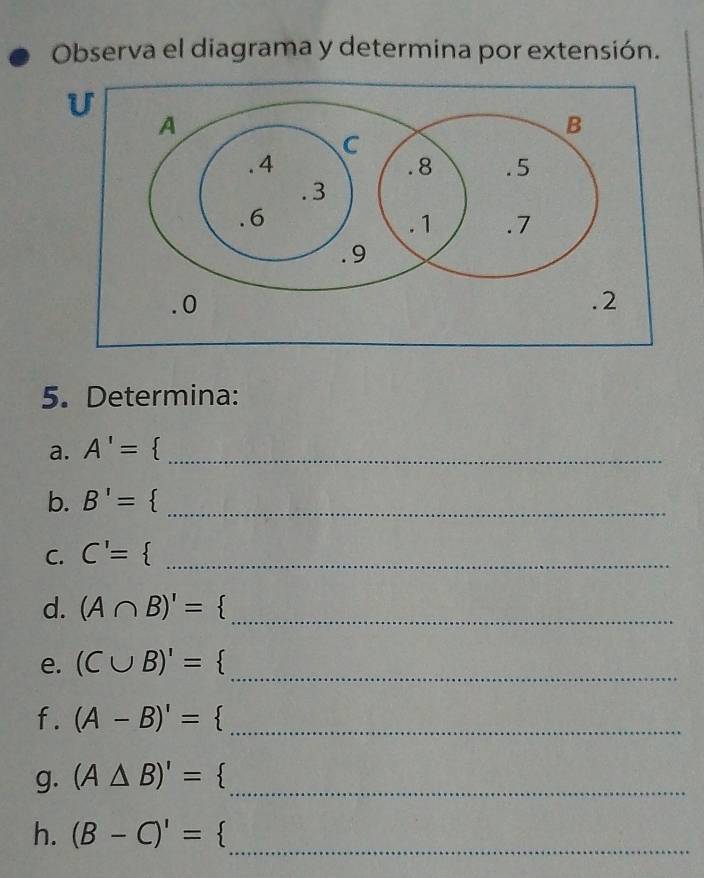 Observa el diagrama y determina por extensión.
U
A
B
C
. 4
. 8
. 5
. 3
. 6
. 1
. 7
. 9
. 0
. 2
5. Determina:
a. A' = {
b. B' = {
c. C' = {
d. (A ∩ B)' = {
e. (C ∪ B)' = {
f. (A − B)' = {
g. (A Δ B)' = {
h. (B − C)' = {